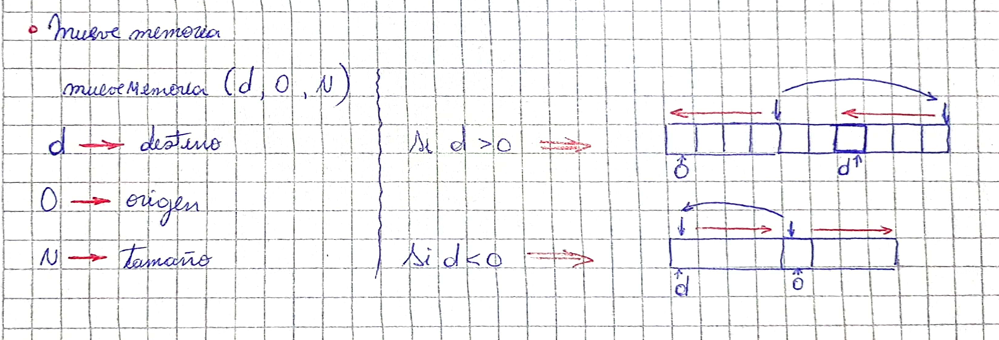 • Mueve memoria
mueveMemoria (d, O, N)
d → destino
O → origen
N → tamaño
Si d > O ⇒
O
d
Si d < O ⇒
d
O